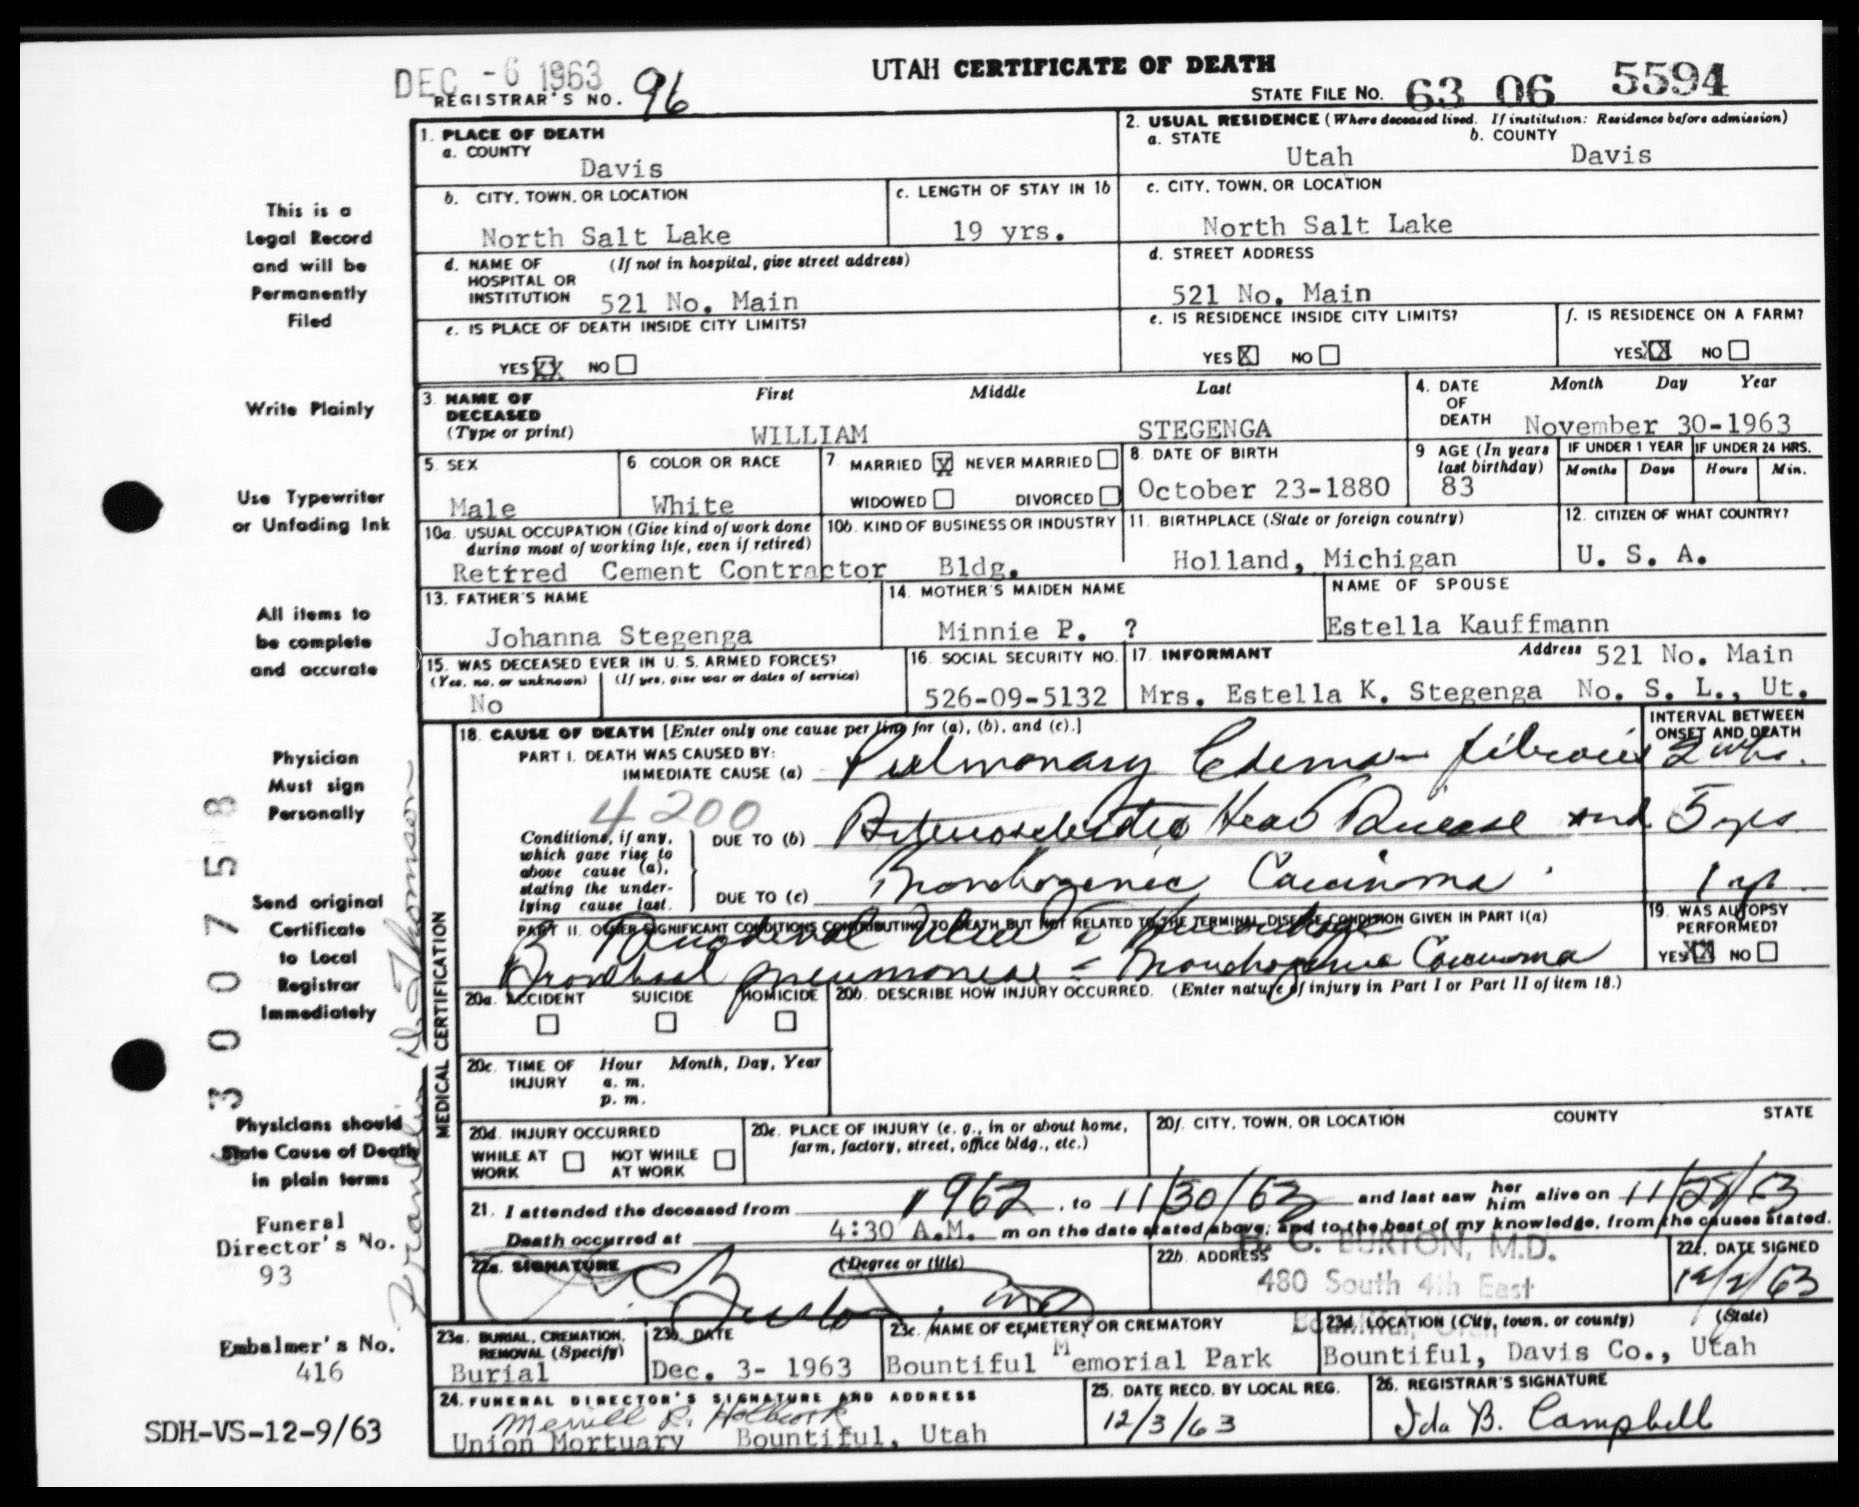 DEC -6 1963
UTAH CERTIFICATE OF DEATH
REGISTRAR'S NO. 96
STATE FILE NO. 63 06 5594
1. PLACE OF DEATH
a. COUNTY
Davis
2. USUAL RESIDENCE (Where deceased lived. If institution: Residence before admission)
a. STATE b. COUNTY
Utah Davis
b. CITY, TOWN, OR LOCATION
North Salt Lake
c. LENGTH OF STAY IN 1b
19 yrs.
c. CITY, TOWN, OR LOCATION
North Salt Lake
d. NAME OF HOSPITAL OR INSTITUTION (If not in hospital, give street address)
521 No. Main
d. STREET ADDRESS
521 No. Main
e. IS PLACE OF DEATH INSIDE CITY LIMITS?
YES XX NO
e. IS RESIDENCE INSIDE CITY LIMITS?
YES X NO
f. IS RESIDENCE ON A FARM?
YES XX NO
3. NAME OF DECEASED (Type or print)
First Middle Last
WILLIAM STEGENGA
4. DATE OF DEATH
Month Day Year
November 30-1963
5. SEX
Male
6. COLOR OR RACE
White
7. MARRIED X NEVER MARRIED
WIDOWED DIVORCED
8. DATE OF BIRTH
October 23-1880
9 AGE (In years last birthday)
83
IF UNDER 1 YEAR
Months Days
IF UNDER 24 HRS.
Hours Min.
10a. USUAL OCCUPATION (Give kind of work done during most of working life, even if retired)
Retired Cement Contractor
10b. KIND OF BUSINESS OR INDUSTRY
Bldg.
11. BIRTHPLACE (State or foreign country)
Holland, Michigan
12. CITIZEN OF WHAT COUNTRY?
U. S. A.
13. FATHER'S NAME
Johanna Stegenga
14. MOTHER'S MAIDEN NAME
Minnie P. ?
NAME OF SPOUSE
Estella Kauffmann
15. WAS DECEASED EVER IN U. S. ARMED FORCES?
(Yes, no, or unknown) (If yes, give war or dates of service)
No
16. SOCIAL SECURITY NO.
526-09-5132
17. INFORMANT Address
521 No. Main
Mrs. Estella K. Stegenga No. S. L., Ut.
MEDICAL CERTIFICATION
18. CAUSE OF DEATH [Enter only one cause per line for (a), (b), and (c).]
INTERVAL BETWEEN ONSET AND DEATH
PART I. DEATH WAS CAUSED BY:
IMMEDIATE CAUSE (a) Pulmonary Edema - fibrosis 2 wks.
4200
Conditions, if any, which gave rise to above cause (a), stating the underlying cause last.
DUE TO (b) Arteriosclerotic Heart Disease and 5 yrs
DUE TO (c) Bronchogenic Carcinoma 1 yr
PART II. OTHER SIGNIFICANT CONDITIONS CONTRIBUTING TO DEATH BUT NOT RELATED TO THE TERMINAL DISEASE CONDITION GIVEN IN PART I(a)
Duodenal Ulcer
Bronchial pneumoniae - Bronchogenic Carcinoma
19. WAS AUTOPSY PERFORMED?
YES XX NO
20a. ACCIDENT SUICIDE HOMICIDE
20b. DESCRIBE HOW INJURY OCCURRED. (Enter nature of injury in Part I or Part II of item 18.)
20c. TIME OF INJURY
Hour Month, Day, Year
a. m.
p. m.
20d. INJURY OCCURRED
WHILE AT WORK NOT WHILE AT WORK
20e. PLACE OF INJURY (e. g., in or about home, farm, factory, street, office bldg., etc.)
20f. CITY, TOWN, OR LOCATION COUNTY STATE
21. I attended the deceased from 1962, to 11/30/63 and last saw her him alive on 11/28/63
Death occurred at 4:30 A.M. m on the date stated above; and to the best of my knowledge, from the causes stated.
22a. SIGNATURE (Degree or title)
Burton, MD
22b. ADDRESS
H. C. BURTON, M.D.
480 South 4th East
Bountiful, Utah
22c. DATE SIGNED
12/2/63
23a. BURIAL, CREMATION, REMOVAL (Specify)
Burial
23b. DATE
Dec. 3- 1963
23c. NAME OF CEMETERY OR CREMATORY
Bountiful Memorial Park
23d. LOCATION (City, town, or county) (State)
Bountiful, Davis Co., Utah
24. FUNERAL DIRECTOR'S SIGNATURE AND ADDRESS
Merrill R. Holbrook
Union Mortuary Bountiful, Utah
25. DATE RECD. BY LOCAL REG.
12/3/63
26. REGISTRAR'S SIGNATURE
Ida B. Campbell
This is a
Legal Record
and will be
Permanently
Filed
Write Plainly
Use Typewriter
or Unfading Ink
All items to
be complete
and accurate
Physician
Must sign
Personally
Send original
Certificate
to Local
Registrar
Immediately
Physicians should
State Cause of Death
in plain terms
Funeral
Director's No.
93
Embalmer's No.
416
SDH-VS-12-9/63
Franklin D. Thomson